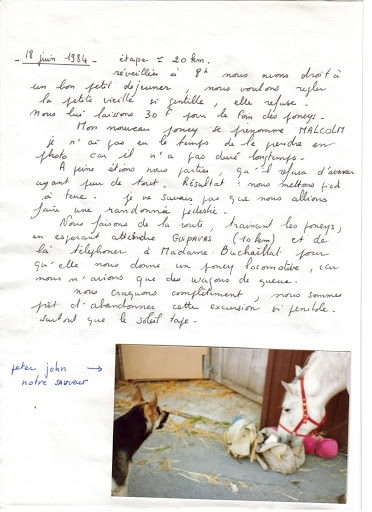 18 juin 1984 étape ≃ 20 km.
réveillées à 8h nous avons droit à
un bon petit déjeuner, nous voulons régler
la petite vieille si gentille, elle refuse.
Nous lui laissons 30 F pour le foin des poneys.
Mon nouveau poney se prénomme MALCOLM
je n'ai pas eu le temps de le prendre en
photo car il n'a pas duré longtemps.
A peine étions nous parties, qu'il refusa d'avancer
ayant peur de tout. Résultat : nous mettons pied
à terre. Je ne savais pas que nous allions
faire une randonnée pédestre.
Nous faisons de la route, trainant les poneys,
en espérant atteindre GUIPAVAS (10 km) et de
là téléphoner à Madame Buchaillat pour
qu'elle nous donne un poney locomotive, car
nous n'avions que des wagons de queue.
nous craquons complètement, nous sommes
prêt d'abandonner cette excursion si pénible.
Surtout que le soleil tape.
peter john →
notre sauveur